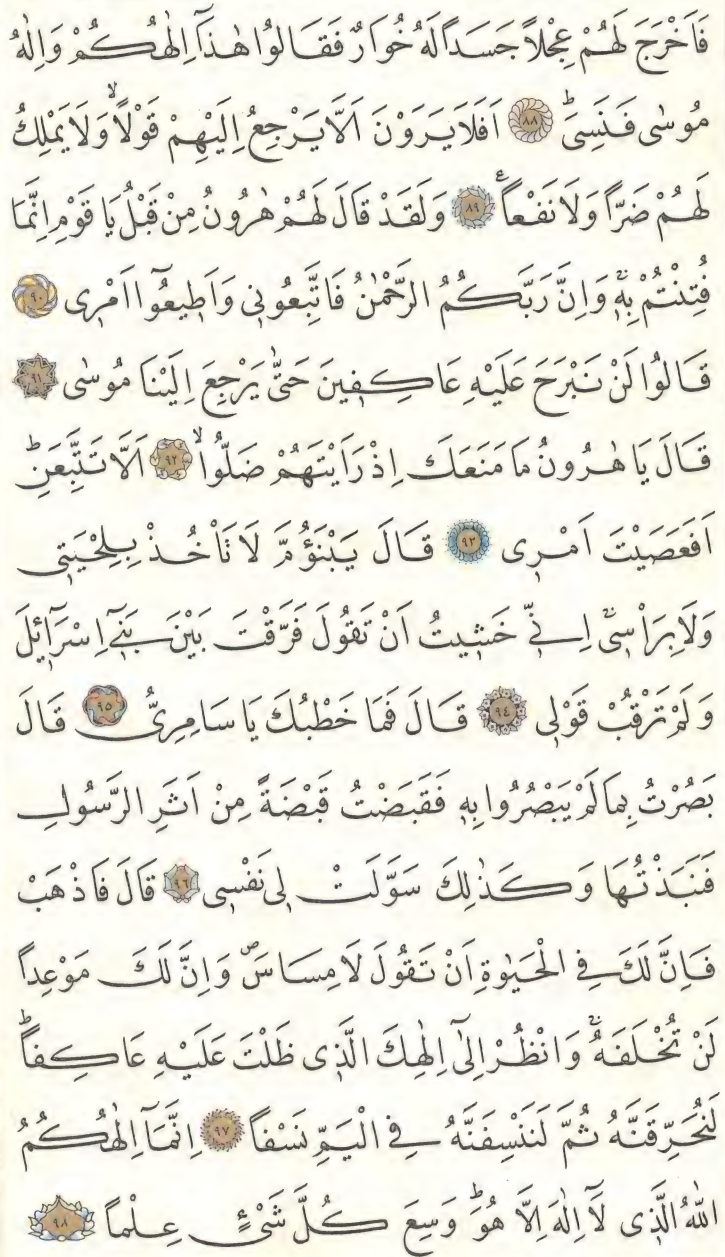 فَاَخْرَجَ لَهُمْ عِجْلاً جَسَداً لَهُ خُوَارٌ فَقَالُوا هٰذَٓا اِلٰهُكُمْ وَاِلٰهُ
مُوسٰى فَنَسِىَۜ ﴿٨٨﴾ اَفَلَا يَرَوْنَ اَلَّا يَرْجِعُ اِلَيْهِمْ قَوْلاًۙ وَلَا يَمْلِكُ
لَهُمْ ضَرًّا وَلَا نَفْعاًࣖ ﴿٨٩﴾ وَلَقَدْ قَالَ لَهُمْ هٰرُونُ مِنْ قَبْلُ يَا قَوْمِ اِنَّمَا
فُتِنْتُمْ بِهٖۚ وَاِنَّ رَبَّكُمُ الرَّحْمٰنُ فَاتَّبِعُونٖى وَاَطٖيعُٓوا اَمْرٖى ﴿٩٠﴾
قَالُوا لَنْ نَبْرَحَ عَلَيْهِ عَاكِفٖينَ حَتّٰى يَرْجِعَ اِلَيْنَا مُوسٰى ﴿٩١﴾
قَالَ يَا هٰرُونُ مَا مَنَعَكَ اِذْ رَاَيْتَهُمْ ضَلُّواۙ ﴿٩٢﴾ اَلَّا تَتَّبِعَنِۜ
اَفَعَصَيْتَ اَمْرٖى ﴿٩٣﴾ قَالَ يَبْنَؤُمَّ لَا تَاْخُذْ بِلِحْيَتٖى
وَلَا بِرَاْسٖىۚ اِنّٖى خَشٖيتُ اَنْ تَقُولَ فَرَّقْتَ بَيْنَ بَنٖٓى اِسْرَٓائٖلَ
وَلَمْ تَرْقُبْ قَوْلٖى ﴿٩٤﴾ قَالَ فَمَا خَطْبُكَ يَا سَامِرِىُّ ﴿٩٥﴾ قَالَ
بَصُرْتُ بِمَا لَمْ يَبْصُرُوا بِهٖ فَقَبَضْتُ قَبْضَةً مِنْ اَثَرِ الرَّسُولِ
فَنَبَذْتُهَا وَكَذٰلِكَ سَوَّلَتْ لٖى نَفْسٖى ﴿٩٦﴾ قَالَ فَاذْهَبْ
فَاِنَّ لَكَ فِى الْحَيٰوةِ اَنْ تَقُولَ لَا مِسَاسَۖ وَاِنَّ لَكَ مَوْعِداً
لَنْ تُخْلَفَهُۚ وَانْظُرْ اِلٰٓى اِلٰهِكَ الَّذٖى ظَلْتَ عَلَيْهِ عَاكِفاًۜ
لَنُحَرِّقَنَّهُ ثُمَّ لَنَنْسِفَنَّهُ فِى الْيَمِّ نَسْفاً ﴿٩٧﴾ اِنَّمَٓا اِلٰهُكُمُ
اللّٰهُ الَّذٖى لَٓا اِلٰهَ اِلَّا هُوَۜ وَسِعَ كُلَّ شَىْءٍ عِلْماً ﴿٩٨﴾